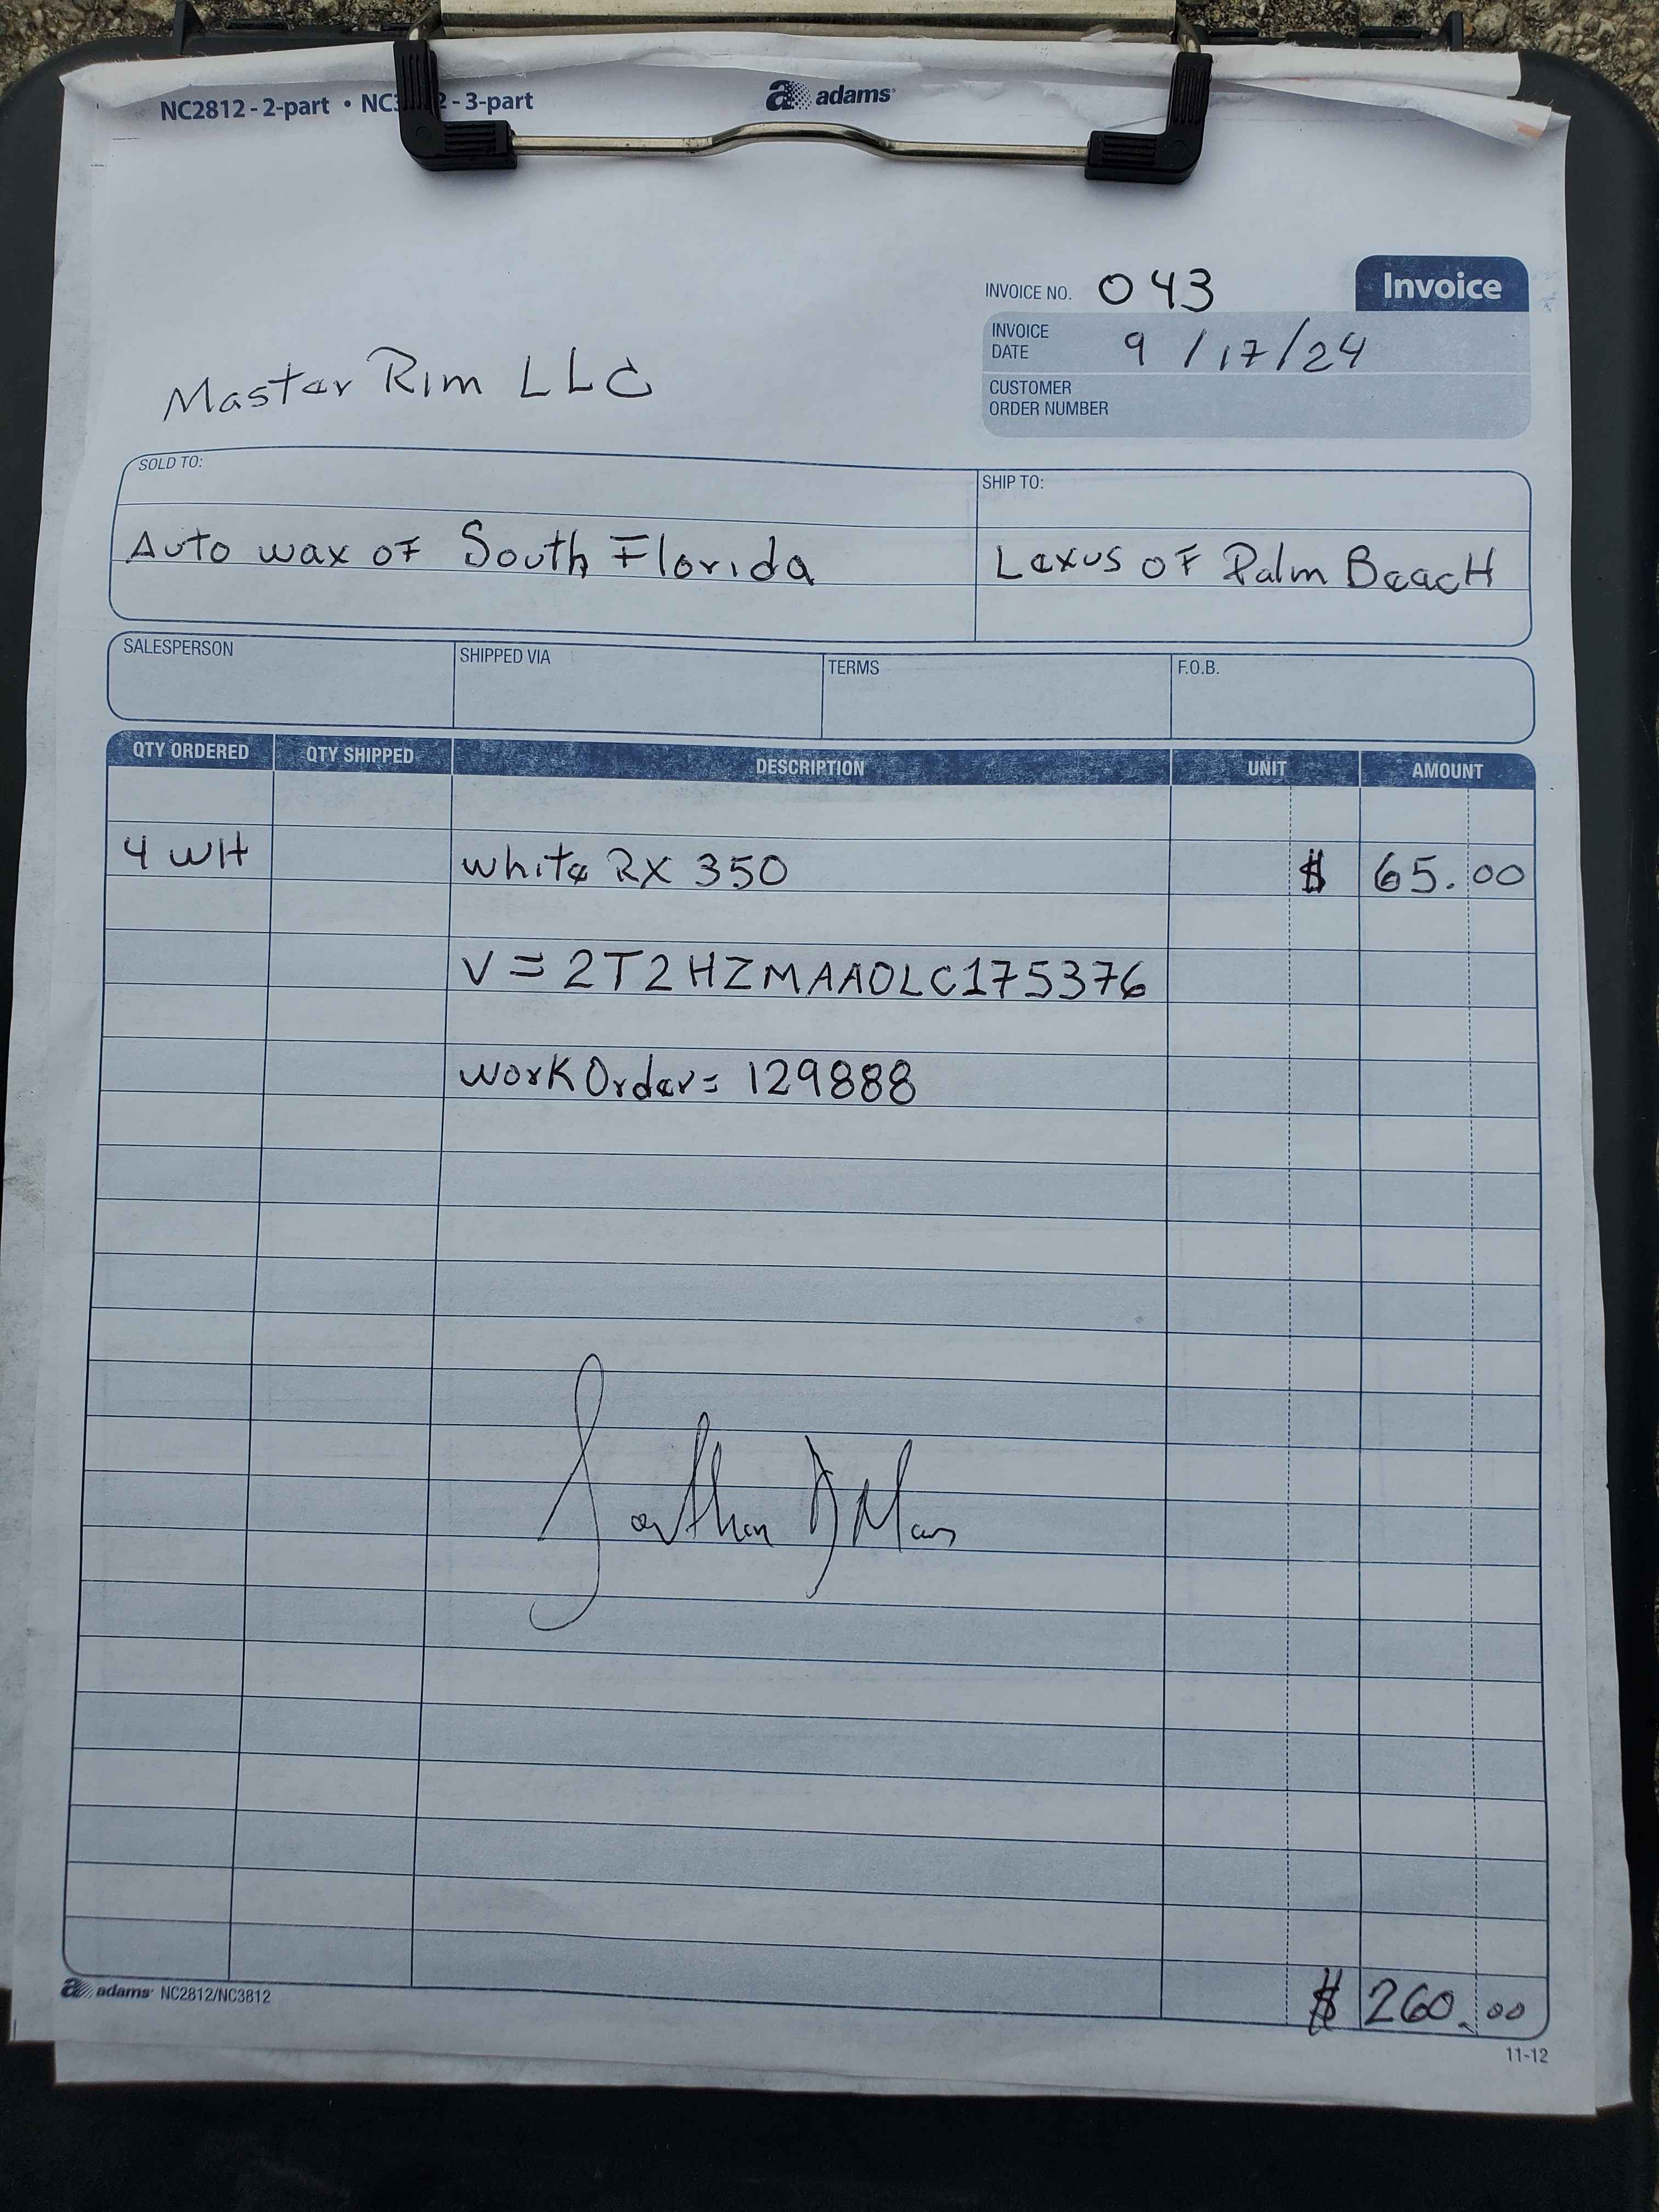 NC2812 - 2-part • NC3 2 - 3-part
adams
INVOICE NO. 043
Invoice
INVOICE DATE 9/17/24
CUSTOMER ORDER NUMBER
Master Rim LLC
SOLD TO:
SHIP TO:
Auto wax of South Florida
Lexus of Palm Beach
SALESPERSON
SHIPPED VIA
TERMS
F.O.B.
QTY ORDERED QTY SHIPPED DESCRIPTION UNIT AMOUNT
4 WH white RX 350 $ 65.00
V = 2T2HZMAA0LC175376
work Order = 129888
$ 260.00
adams NC2812/NC3812
11-12